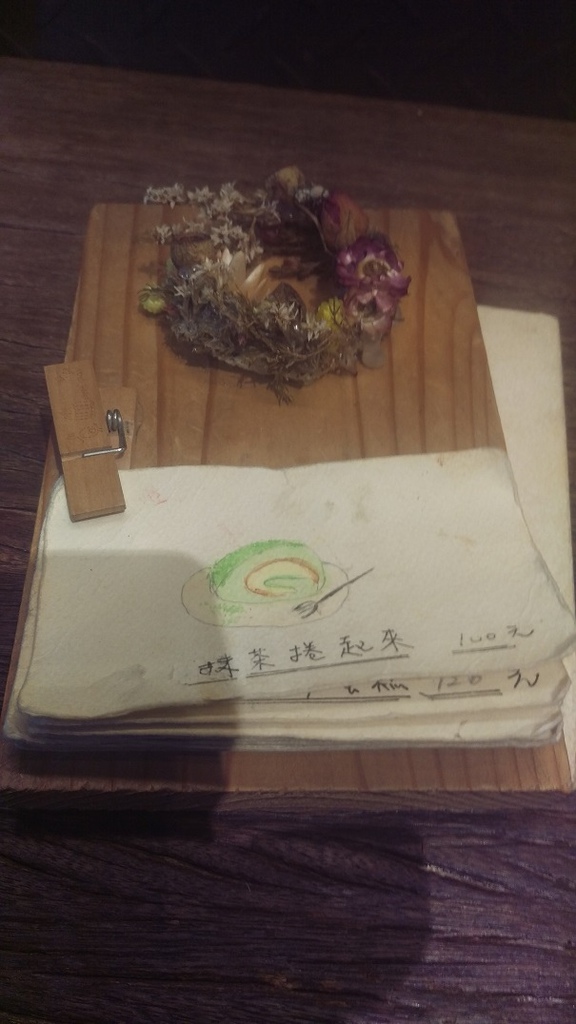 抹茶捲起來 100元
120元